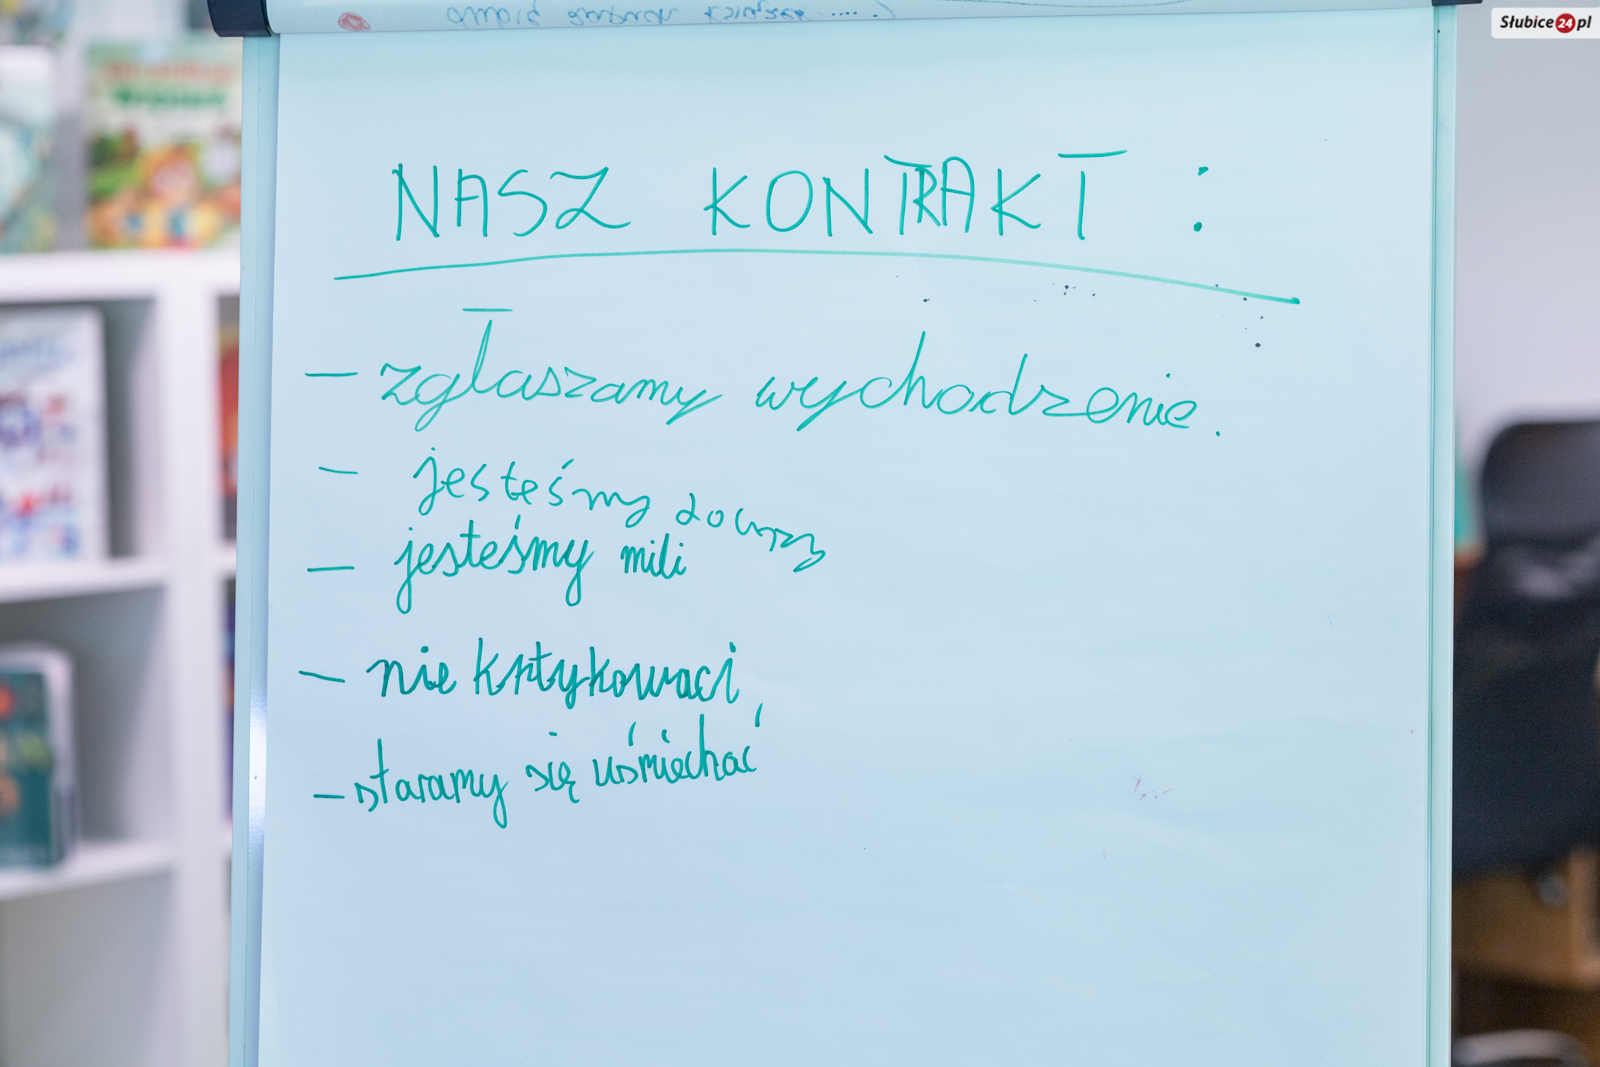 Słubice24.pl
NASZ KONTRAKT :
– zgłaszamy wychodzenie.
– jesteśmy
– jesteśmy mili
– nie krtykowaci
– staramy się uśmiechać